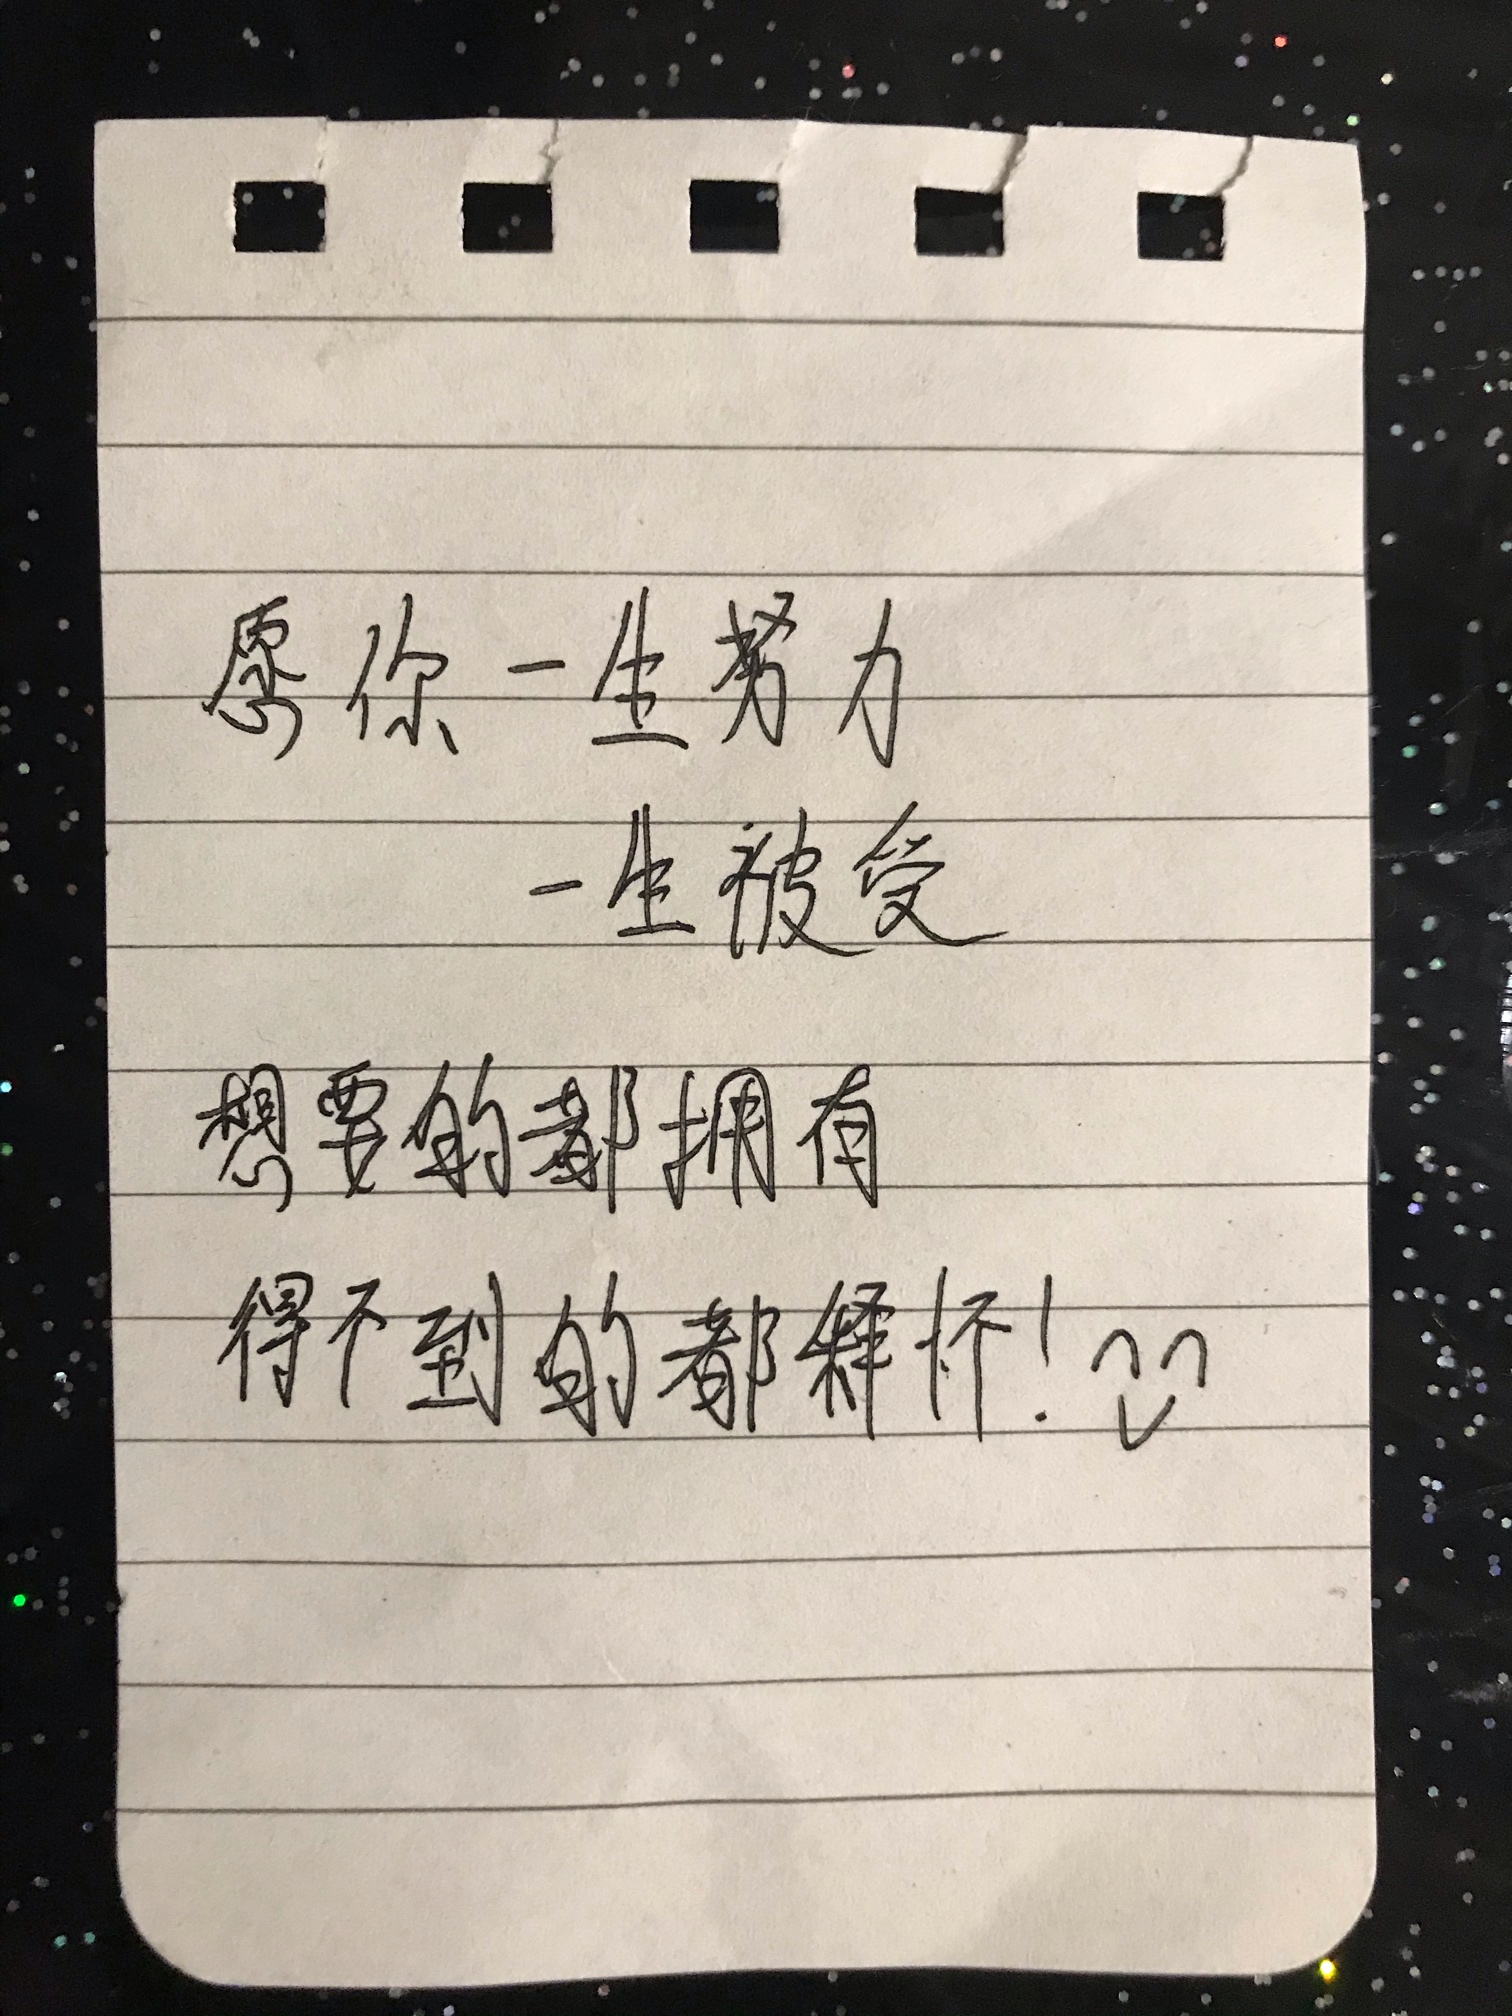 愿你一生努力
一生被爱
想要的都拥有
得不到的都释怀!